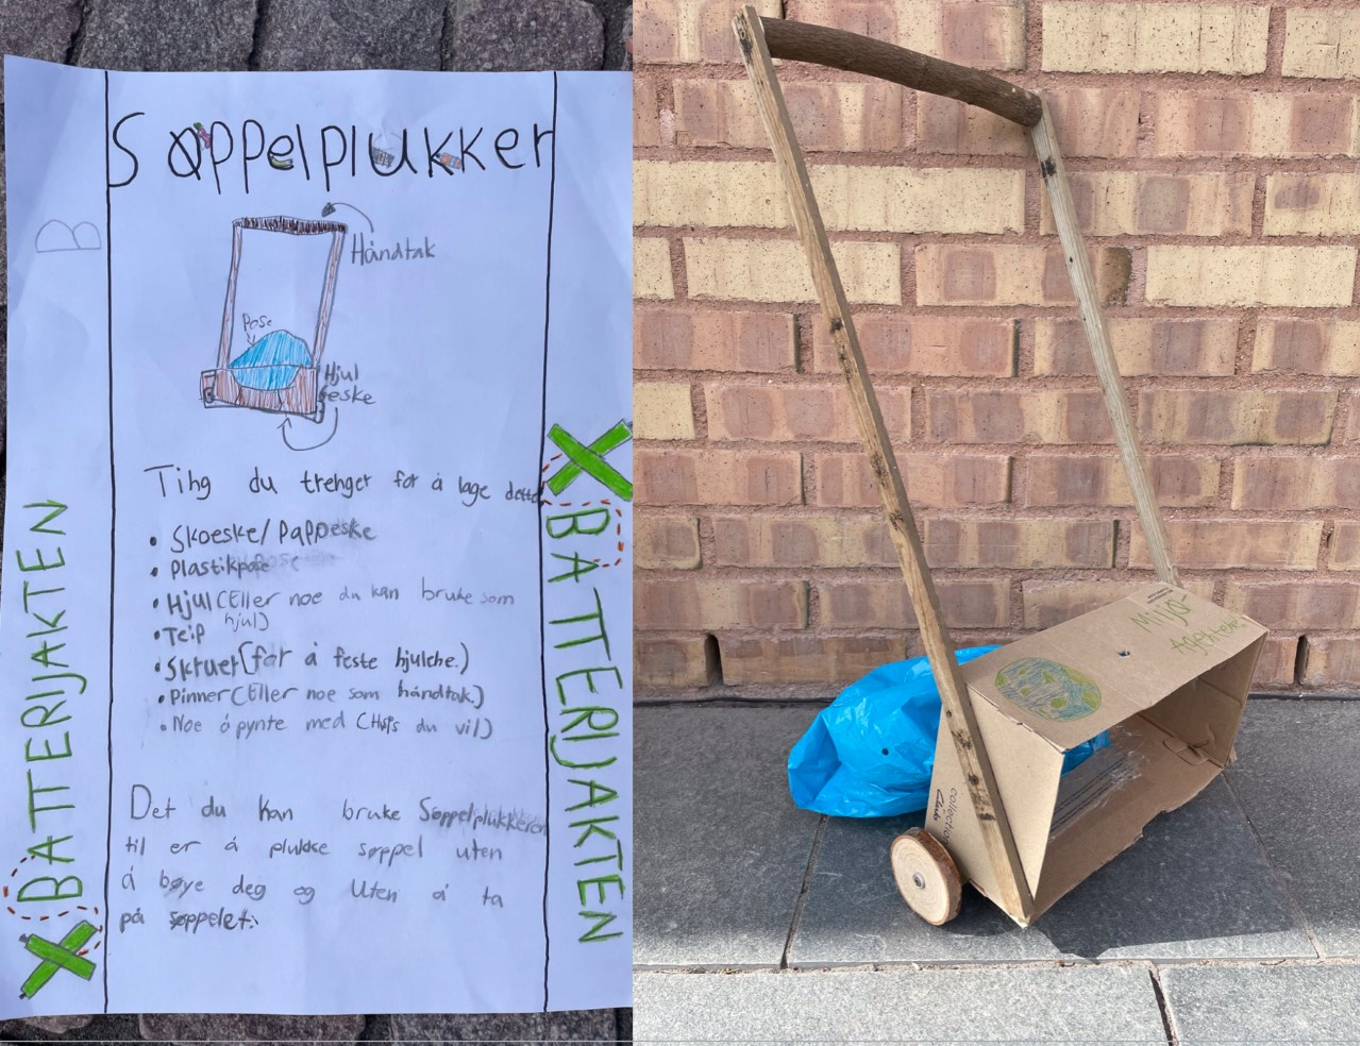 Søppelplukker
B
Håndtak
Pose
Hjul
eske
Ting du trenger for å lage dette
• Skoeske/Pappeske
• Plastikpose
• Hjul (Eller noe du kan bruke som
hjul)
• Teip
• Skruer (for å feste hjulene.)
• Pinner (Eller noe som håndtak.)
• Noe å pynte med (Hvis du vil)
Det du kan bruke Søppelplukkeren
til er å plukke søppel uten
å bøye deg og Uten å ta
på søppelet.
BATTERIJAKTEN
BATTERIJAKTEN
Miljø-
Agentene
collection
Clarks